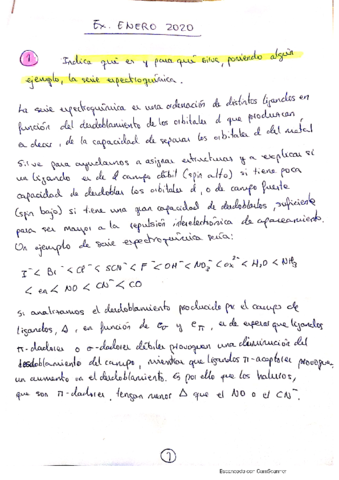 Ex. ENERO 2020
1 Indica qué es y para qué sirve, poniendo algún
ejemplo, la serie espectroquímica.
La serie espectroquímica es una ordenación de distintos ligandos en
función del desdoblamiento de los orbitales d que produzcan,
es decir, de la capacidad de separar los orbitales d del metal
Sirve para ayudarnos a asignar estructuras y a explicar si
un ligando es de campo débil (spin alto) si tiene poca
capacidad de desdoblar los orbitales d, o de campo fuerte
(spin bajo) si tiene una gran capacidad de desdoblarlos, suficiente
para ser mayor a la repulsión interelectrónica de apareamiento.
Un ejemplo de serie espectroquímica sería:
I⁻ < Br⁻ < Cl⁻ < SCN⁻ < F⁻ < OH⁻ < NO₃⁻ < ox²⁻ < H₂O < NH₃
< en < NO < CN⁻ < CO
Si analizamos el desdoblamiento producido por el campo de
ligandos, Δ, en función de eσ y eπ, es de esperar que ligandos
π-dadores o σ-dadores débiles provoquen una disminución del
desdoblamiento del campo, mientras que ligandos π-aceptores provoquen
un aumento en el desdoblamiento. Es por ello que los haluros,
que son π-dadores, tengan menor Δ que el NO o el CN⁻.
1
Escaneado con CamScanner